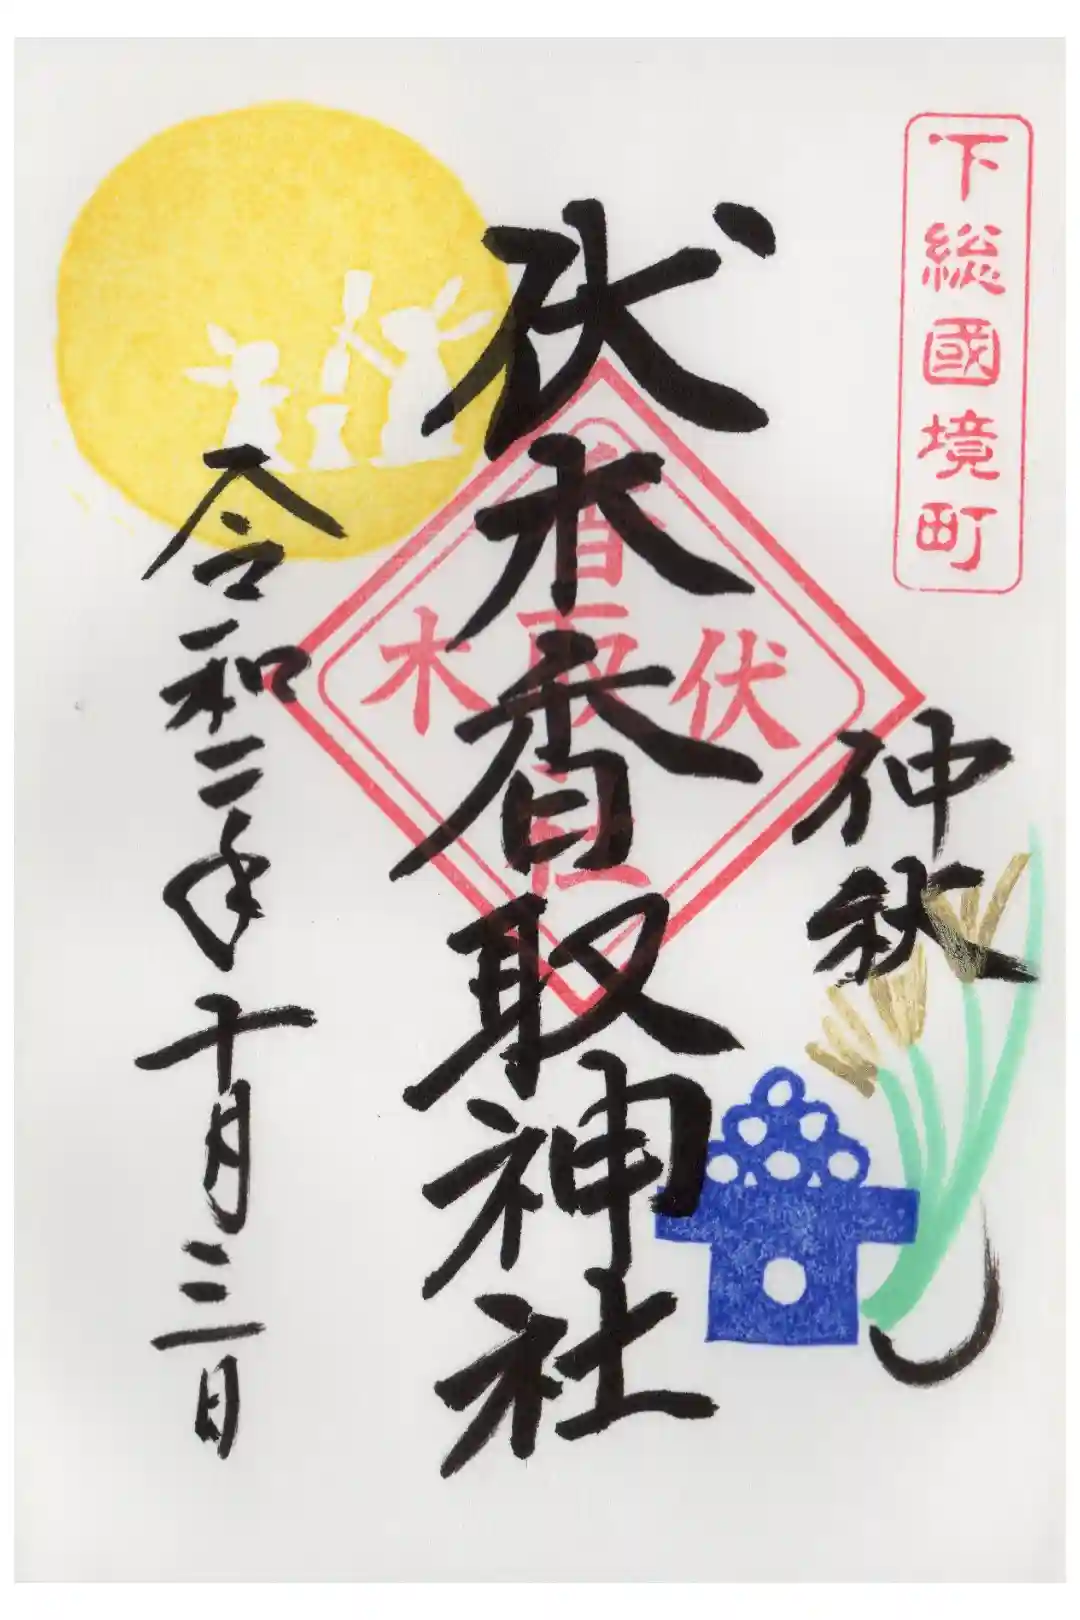 下総國境町
仲秋
伏木香取神社
伏木
香取
社
令和二年十月三日